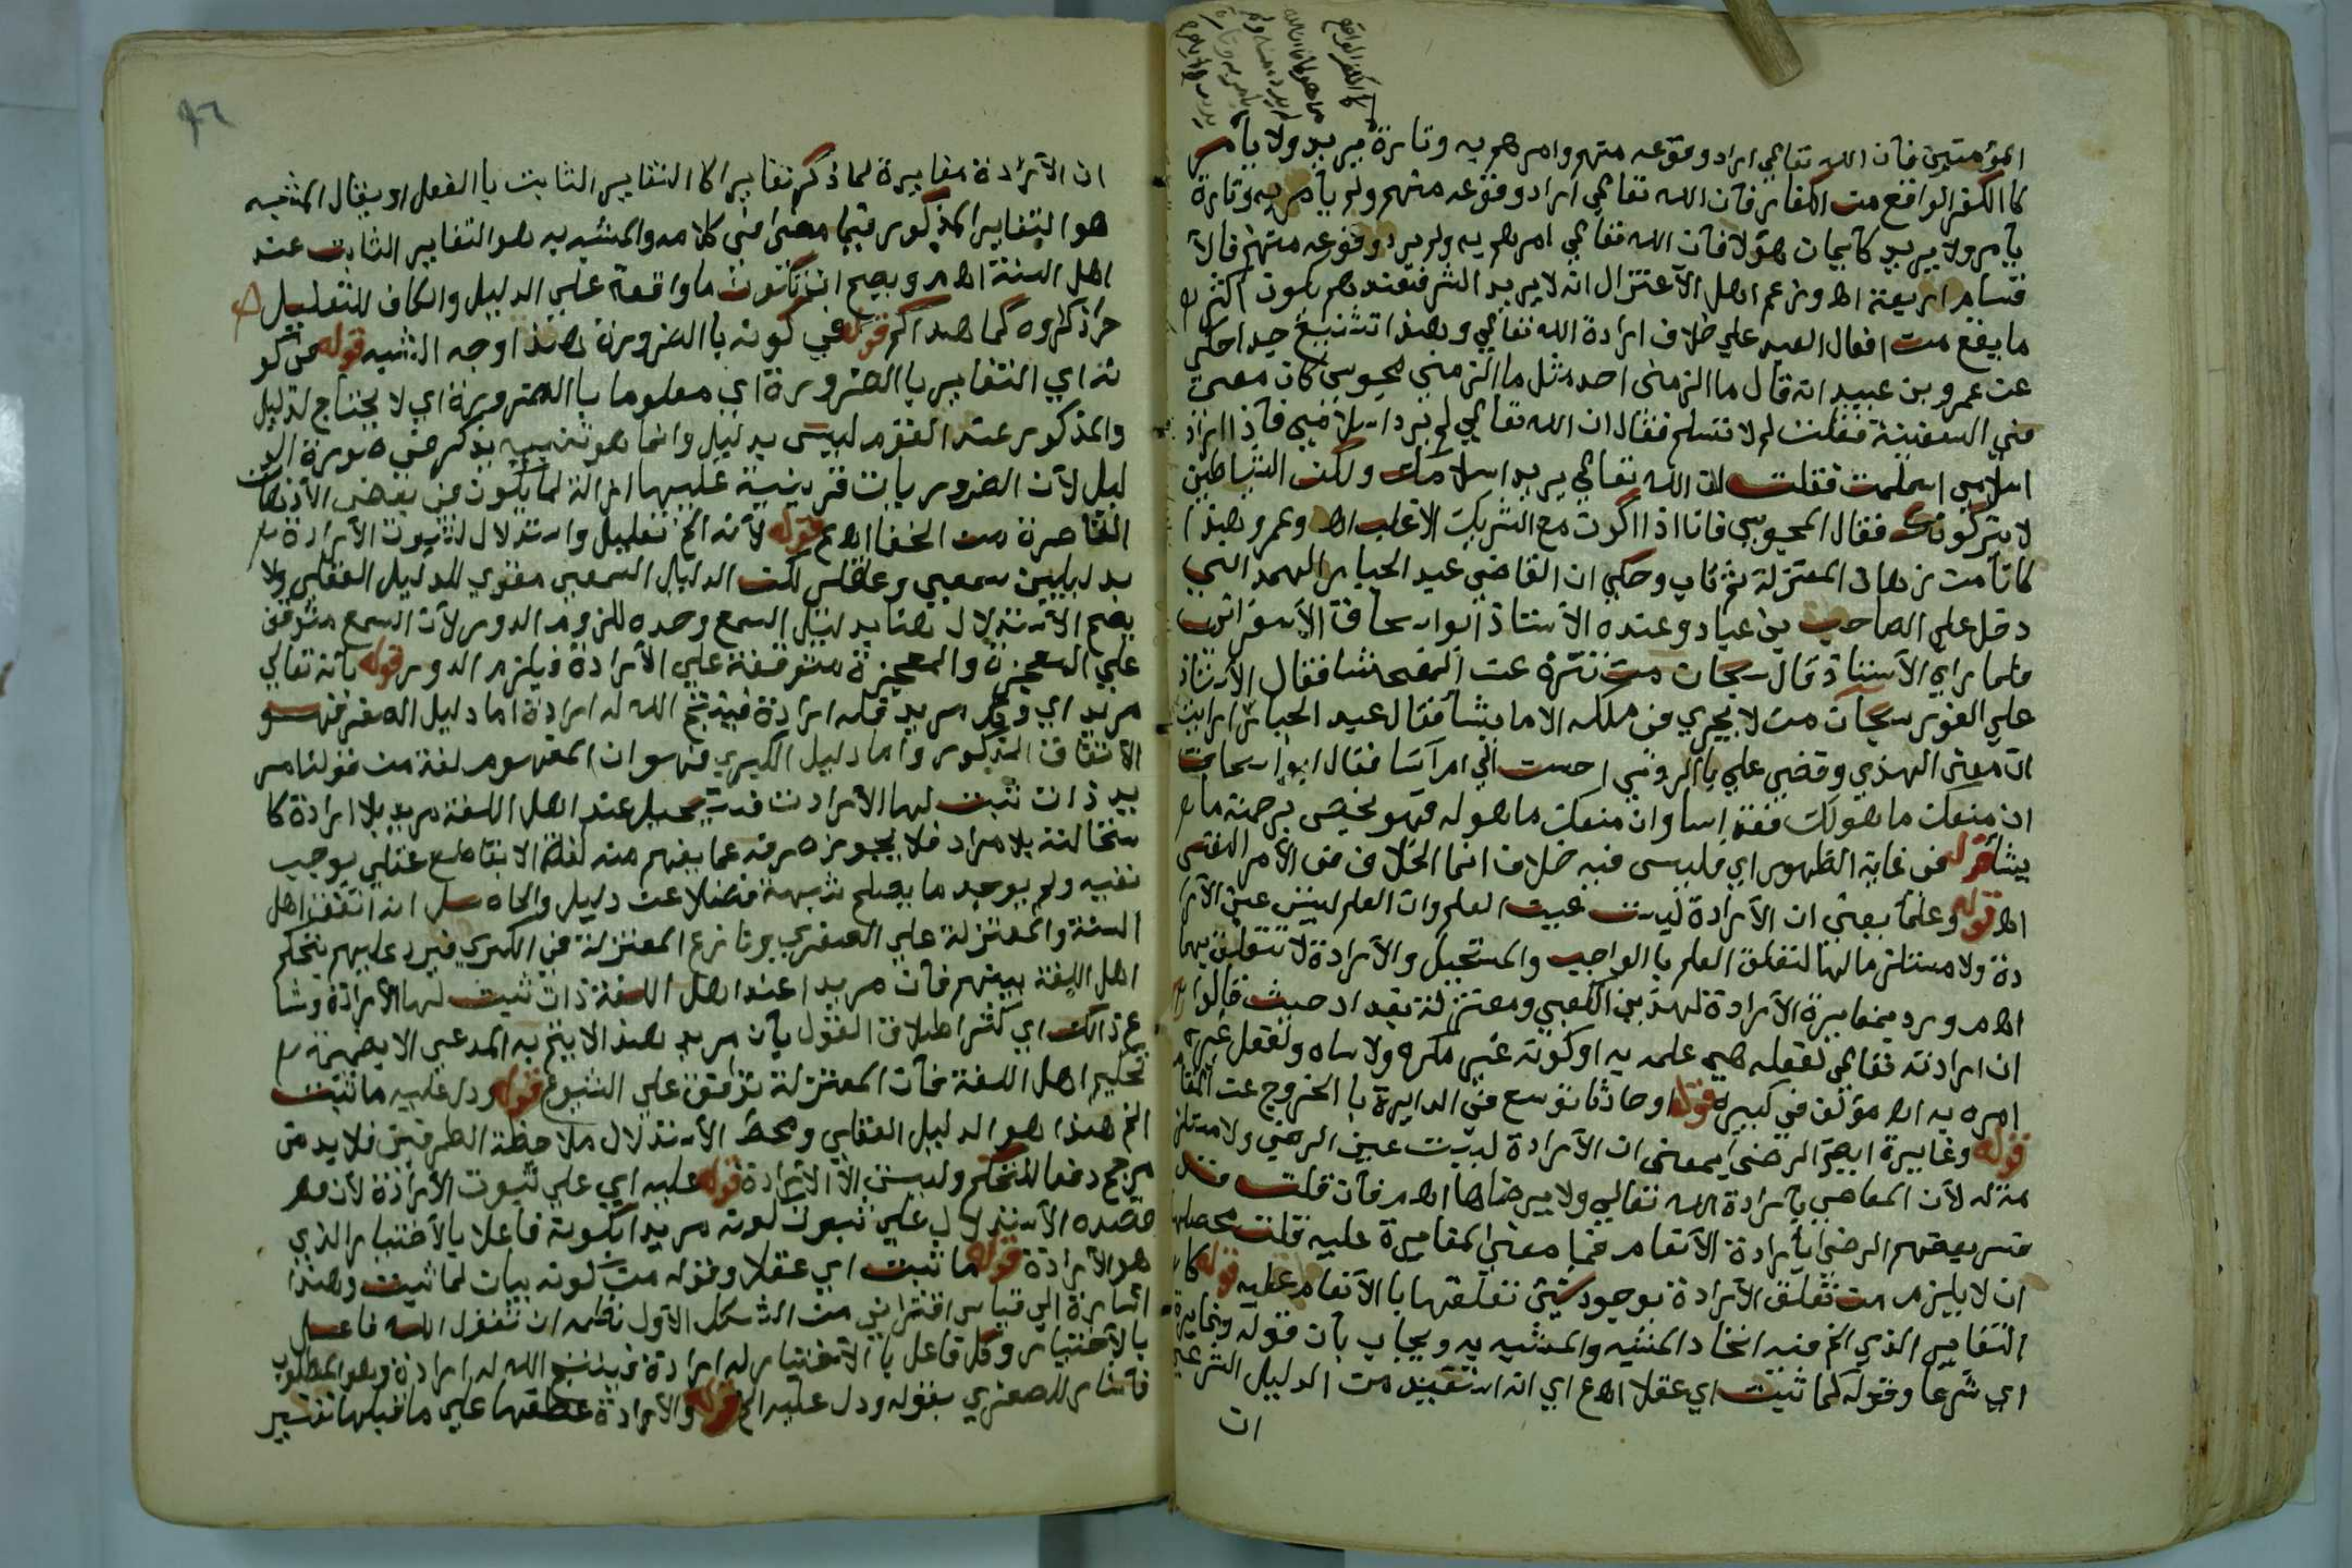 المؤمنين فان الله تعالى اراد وقوعه منهم وامرهم به وتارة يريد ولا يامر
كا الكفر الواقع من الكفار فان الله تعالى اراد وقوعه منهم ولم يامر به وتارة
يامر ولا يريد كايمان هولا فان الله تعالى امرهم به ولم يرد وقوعه منهم فالا
قسام اربعة اه وزعم اهل الاعتزال انه لا يريد الشر فعندهم يكون اكثر
ما يقع من افعال العبد على خلاف ارادة الله تعالى وهذا تشنيع جدا حكى
عن عمرو بن عبيد انه قال ما الزمنى احد مثل ما الزمنى مجوسي كان معى
في السفينة فقلت لم لا تسلم فقال ان الله تعالى لم يرد اسلامي فاذا اراد
اسلامي اسلمت فقلت ان الله تعالى يريد اسلامك ولكن الشياطين
لا يتركونك فقال المجوسي فانا اذا اكون مع الشريك الاغلب اه وعمرو هذا
كان من زهاد المعتزلة ثم تاب وحكى ان القاضي عبد الجبار الهمداني
دخل على الصاحب بن عباد وعنده الاستاذ ابو اسحاق الاسفرائني
فلما راى الاستاذ قال سبحان من تنزه عن الفحشا فقال الاستاذ
على الفور سبحان من لا يجري في ملكه الا ما يشا فقال عبد الجبار ارايت
ان منعنى الهدى وقضى علي بالردى احسن الي ام اسا فقال ابو اسحاق
ان منعك ما هو لك فقد اسا وان منعك ما هو له فهو يختص برحمته من
يشا قوله في غاية الظهور اي فليس فيه خلاف انما الخلاف في الامر النفسي
اه قوله وعلما يعني ان الارادة ليست عين العلم وان العلم ليس عين الارا
دة ولا مستلزما لها لتعلق العلم بالواجب والمستحيل والارادة لا تتعلق بهما
اه ورد بمغايرة الارادة لهذين الكعبي ومعتزلة بغداد حيث قالوا
ان ارادته تعالى لفعله هي علمه به او كونه غير مكره ولا ساه ولفعل غيره
امره به اه مؤلف في كبيره قوله او حادثا توسع في الدايرة با الخروج عن المقام
قوله وغايرة ايضا الرضى بمعنى ان الارادة ليست عين الرضى ولا مستلز
مة له لان المعاصي بارادة الله تعالى ولا يرضاها اه فان قلت قد
فسر بعضهم الرضى بارادة الانعام فما معنى المغايرة عليه قلت محصلها
ان لا يلزم من تعلق الارادة بوجود شئ تعلقها با الانعام عليه قوله كا
التغاير الذي الخ فيه اتحاد المشبه والمشبه به ويجاب بان قوله وغايرة
اي شرعا وقوله كما ثبت اي عقلا اه ع اي انه استفيد من الدليل الشرعي
ان
٩٦
ان الارادة مغايرة لما ذكر تغايرا كا التغاير الثابت با الفعل او يقال المشبه
هو التغاير المذكور فيما مضى في كلامه والمشبه به هو التغاير الثابت عند
اهل السنة اه ويصح ان تكون ما واقعة على الدليل والكاف للتعليل
واذكروه كما هداكم قوله في كونه با الضرورة هذا وجه الشبه قوله في كو
نه اي التغاير با الضرورة اي معلوما با الضرورة اي لا يحتاج لدليل
والمذكور عند القوم ليس بدليل وانما هو تنبيه يذكر في صورة الد
ليل لان الضروريات قد ينبه عليها ازالة لما يكون في بعض الاذهان
القاصرة من الخفا اه ع قوله لانه الخ تعليل واستدلال لثبوت الارادة
بدليلين سمعي وعقلي لكن الدليل السمعي مقوي للدليل العقلي ولا
يصح الاستدلال هنا بدليل السمع وحده للزوم الدور لان السمع متوقف
على المعجزة والمعجزة متوقفة على الارادة فيلزم الدور قوله بانه تعالى
مريد اي وكل مريد فله ارادة فينتج الله له ارادة اما دليل الصغرى فهو
الاتفاق المذكور واما دليل الكبرى فهو ان المفهوم لغة من قولنا مر
يد ذات ثبت لها الارادة فيستحيل عند اهل اللغة مريد بلا ارادة كا
ستحالته بلا مراد فلا يجوز صرفه عما يفهم منه لغة الا بقاطع عقلي يوجب
نفيه ولم يوجد ما يصلح شبهة فضلا عن دليل والحاصل انه اتفق اهل
السنة والمعتزلة على الصغرى ونازع المعتزلة في الكبرى فيرد عليهم بتحكم
اهل اللغة بينهم فان مريدا عند اهل اللغة ذات ثبت لها الارادة وشا
ع ذالك اي كثر اطلاق القول بان مريد هذا لا ينتج به المدعي الا بضميمة
تحكيم اهل اللغة فان المعتزلة توافق على الشيوع قوله ودل عليه ما ثبت
الخ هذا هو الدليل العقلي ومحط الاستدلال ملاحظة الطرفين فلا بد من
مرجح دفعا للتحكم وليس الا الارادة قوله عليه اي على ثبوت الارادة لان
قصده الاستدلال على ثبوت كونه مريدا بكونه فاعلا بالاختيار الذي
هو الارادة قوله ما ثبت اي عقلا وقوله من كونه بيان لما ثبت وهذا
اشارة الى قياس اقتراني من الشكل الاول نظمه ان تقول الله فاعل
بالاختيار وكل فاعل با الاختيار له ارادة فينتج الله له ارادة وهو المطلوب
فاشار للصغرى بقوله ودل عليه الخ قوله والارادة عطفها على ما قبلها تفسير